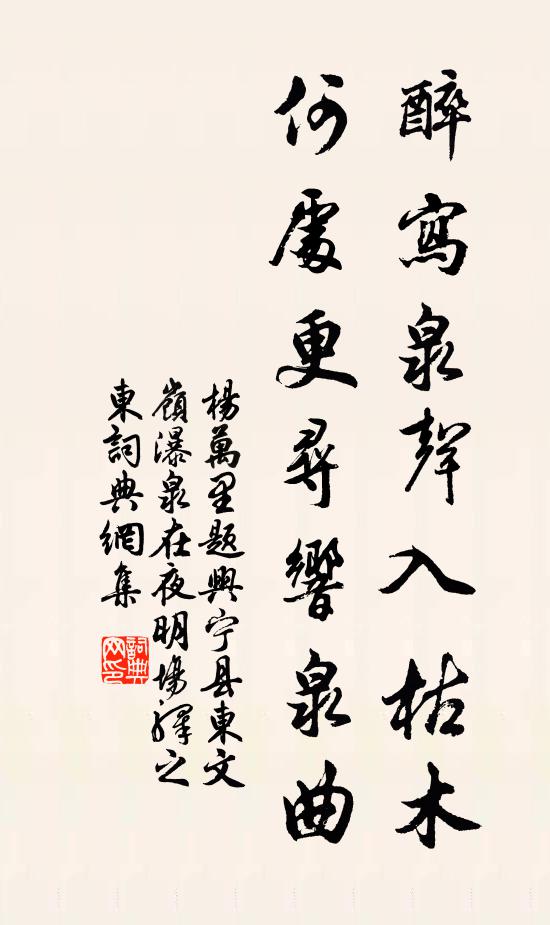 醉寫泉聲入枯木
何處更尋響泉曲
楊萬里題興宁县東文
嶺瀑泉在夜明場驛之
東詞典網集
詞典
网印